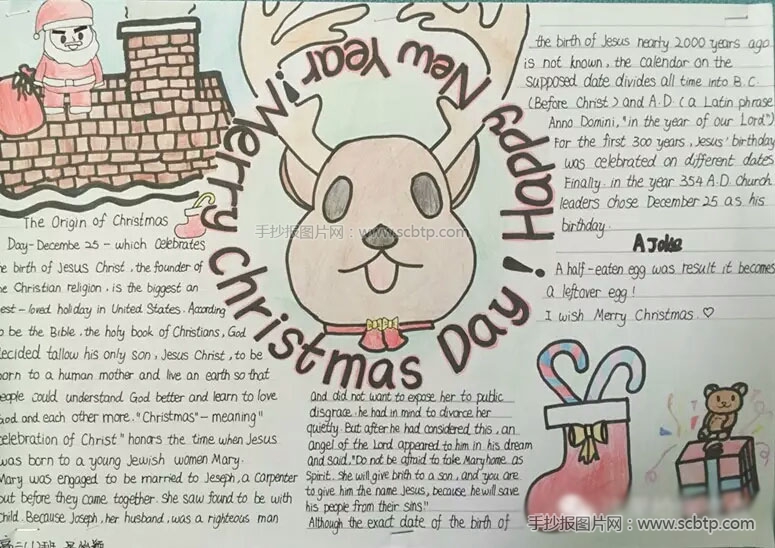 Merry Christmas Day! Happy New Year!
The Origin of Christmas
Day-Decembe 25 - which Celebrates
the birth of Jesus Christ, the founder of
the Christian religion, is the biggest an
best-loved holiday in United States. According
to be the Bible, the holy book of Christians, God
decided tallow his only son, Jesus Christ, to be
born to a human mother and live an earth so that
people could understand God better and learn to love
God and each other more. "Christmas" - meaning"
celebration of Christ" honors the time when Jesus
was born to a young Jewish women Mary.
Mary was engaged to be married to Jeseph, a Carpenter
but before they came together. She saw found to be with
Child. Because Joseph, her husband, was a righteous man
and did not want to expose her to public
disgrace. he had in mind to divorce her
quietly. But after he had considered this, an
angel of the Lord appeared to him in his dream
and said, "Do not be afraid to take Mary home as
Spirit. She will give brith to a son, and you are
to give him the name Jesus, because he will save
his people from their sins."
Although the exact date of the birth of
the birth of Jesus nearly 2000 years ago
is not known, the calendar on the
supposed date divides all time into B.C.
(Before Christ) and A.D (a Latin phrase
Anno Domini, "in the year of our Lord")
For the first 300 years, Jesus' birthday
was celebrated on different dates
Finally. in the year 354 A.D. church
leaders chose December 25 as his
birthday.
A Joke
A half-eaten egg was result it becomes
a leftover egg!
I wish Merry Christmas. ♡
手抄报图片网：www.scbtp.com
手抄报图片网：www.scbtp.com